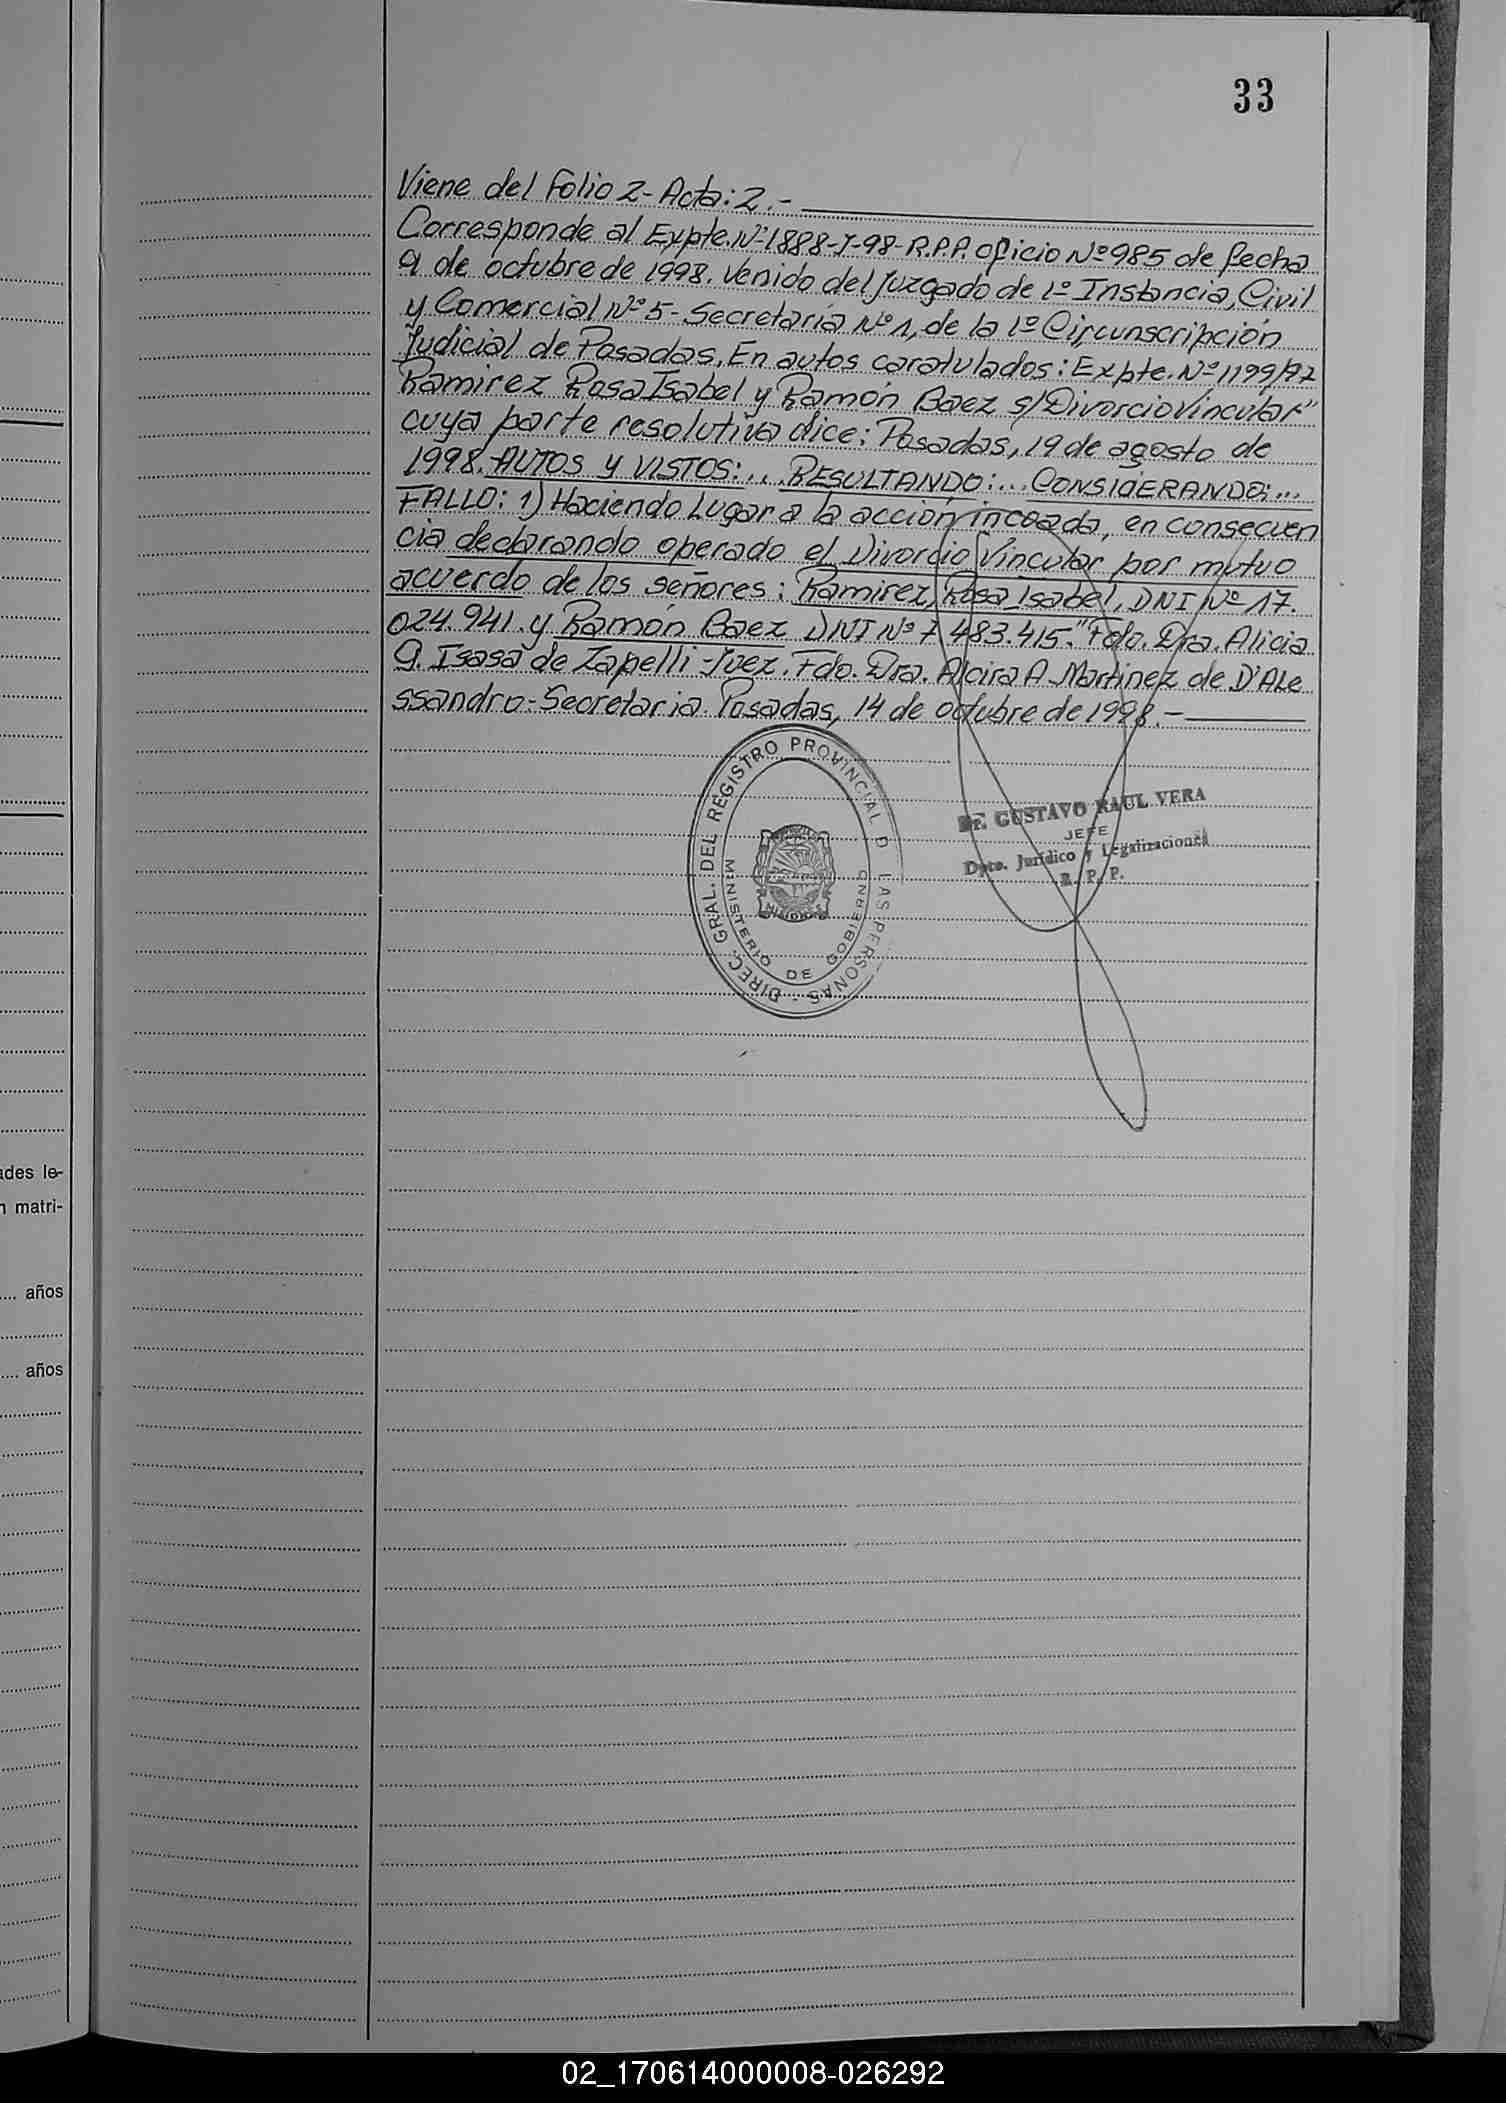 33
Viene del Folio 2- Acta: 2.-
Corresponde al Expte. Nº 1888-J-98- R.P.P. oficio Nº 985 de fecha
9 de octubre de 1998. Venido del Juzgado de 1º Instancia, Civil
y Comercial Nº 5- Secretaría Nº 1, de la 1º Circunscripción
Judicial de Posadas, En autos caratulados: Expte. Nº 1199/97
Ramirez Rosa Isabel y Ramón Baez s/ Divorcio Vincular"
cuya parte resolutiva dice: Posadas, 19 de agosto de
1998. AUTOS y VISTOS:... RESULTANDO:... CONSIDERANDO:...
FALLO: 1) Haciendo Lugar a la acción incoada, en consecuen
cia declarando operado el Divorcio Vincular por mutuo
acuerdo de los señores: Ramirez, Rosa Isabel, DNI Nº 17.
024.941. y Ramón Baez DNI Nº 7.483.415." Fdo. Dra. Alicia
G. Isasa de Zapelli -Juez. Fdo. Dra. Alcira A. Martinez de D'Ale
ssandro- Secretaria. Posadas, 14 de octubre de 1998.-
DIREC. GRAL. DEL REGISTRO PROVINCIAL D LAS PERSONAS -
MINISTERIO DE GOBIERNO
MISIONES
Dr. GUSTAVO RAUL VERA
JEFE
Dpto. Jurídico y Legalizaciones
R. P. P.
ades le-
n matri-
.... años
.... años
02_170614000008-026292